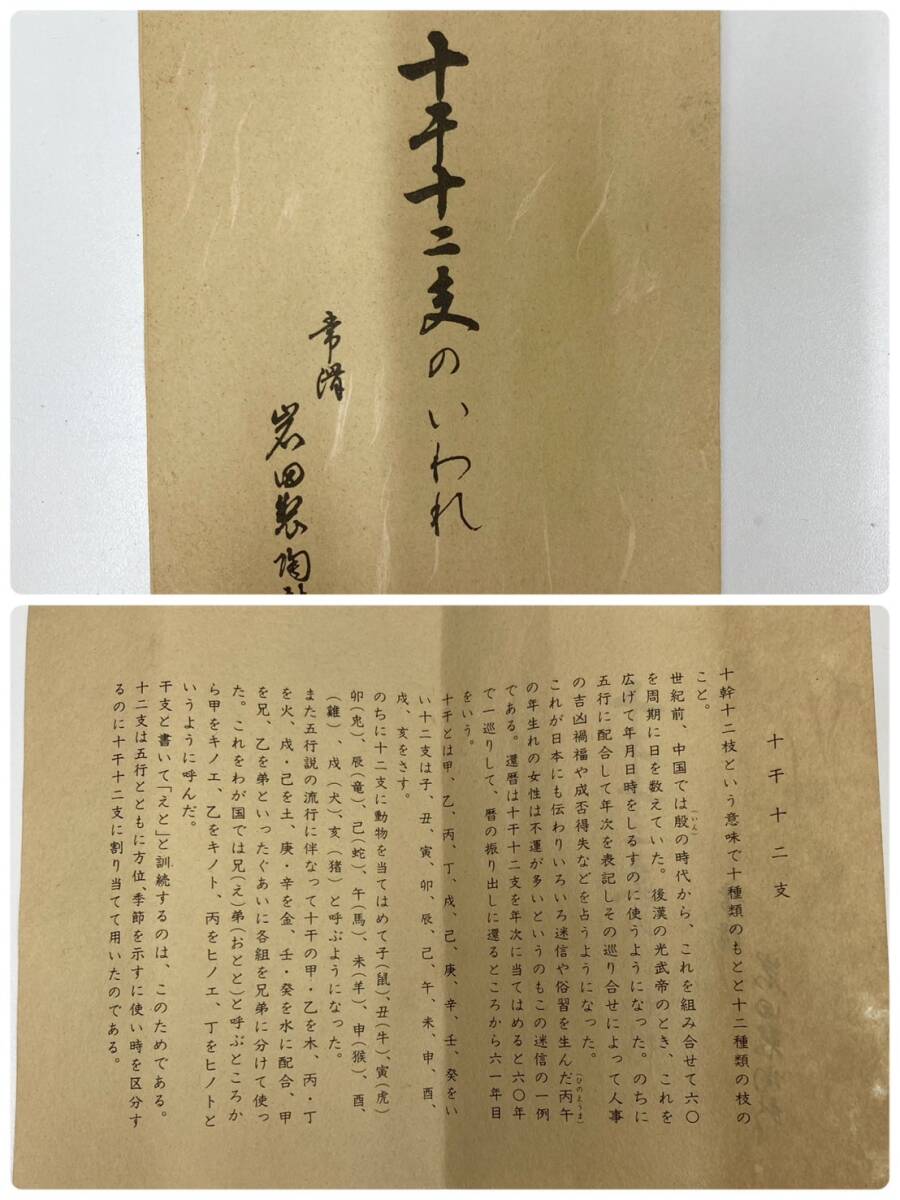 十干十二支のいわれ
常滑
岩田製陶
十干十二支
十幹十二枝という意味で十種類のもとと十二種類の枝の
こと。
世紀前、中国では殷(いん)の時代から、これを組み合せて六〇
を周期に日を数えていた。後漢の光武帝のとき、これを
広げて年月日時をしるすのに使うようになった。のちに
五行に配合して年次を表記しその巡り合せによって人事
の吉凶禍福や成否得失などを占うようになった。
これが日本にも伝わりいろいろ迷信や俗習を生んだ丙午(ひのとうま)
の年生れの女性は不運が多いというのもこの迷信の一例
である。還暦は十干十二支を年次に当てはめると六〇年
で一巡りして、暦の振り出しに還るところから六一年目
をいう。
十干とは甲、乙、丙、丁、戊、己、庚、辛、壬、癸をい
い十二支は子、丑、寅、卯、辰、己、午、未、申、酉、
戌、亥をさす。
のちに十二支に動物を当てはめて子(鼠)、丑(牛)、寅(虎)
卯(兎)、辰(竜)、己(蛇)、午(馬)、未(羊)、申(猴)、酉、
(雞)、戌(犬)、亥(猪)と呼ぶようになった。
また五行説の流行に伴なって十干の甲・乙を木、丙・丁
を火、戊・己を土、庚・辛を金、壬・癸を水に配合、甲
を兄、乙を弟といったぐあいに各組を兄弟に分けて使っ
た。これをわが国では兄(え)弟(おとと)と呼ぶところか
ら甲をキノエ、乙をキノト、丙をヒノエ、丁をヒノトと
いうように呼んだ。
干支と書いて「えと」と訓続するのは、このためである。
十二支は五行とともに方位、季節を示すに使い時を区分す
るのに十干十二支に割り当てて用いたのである。